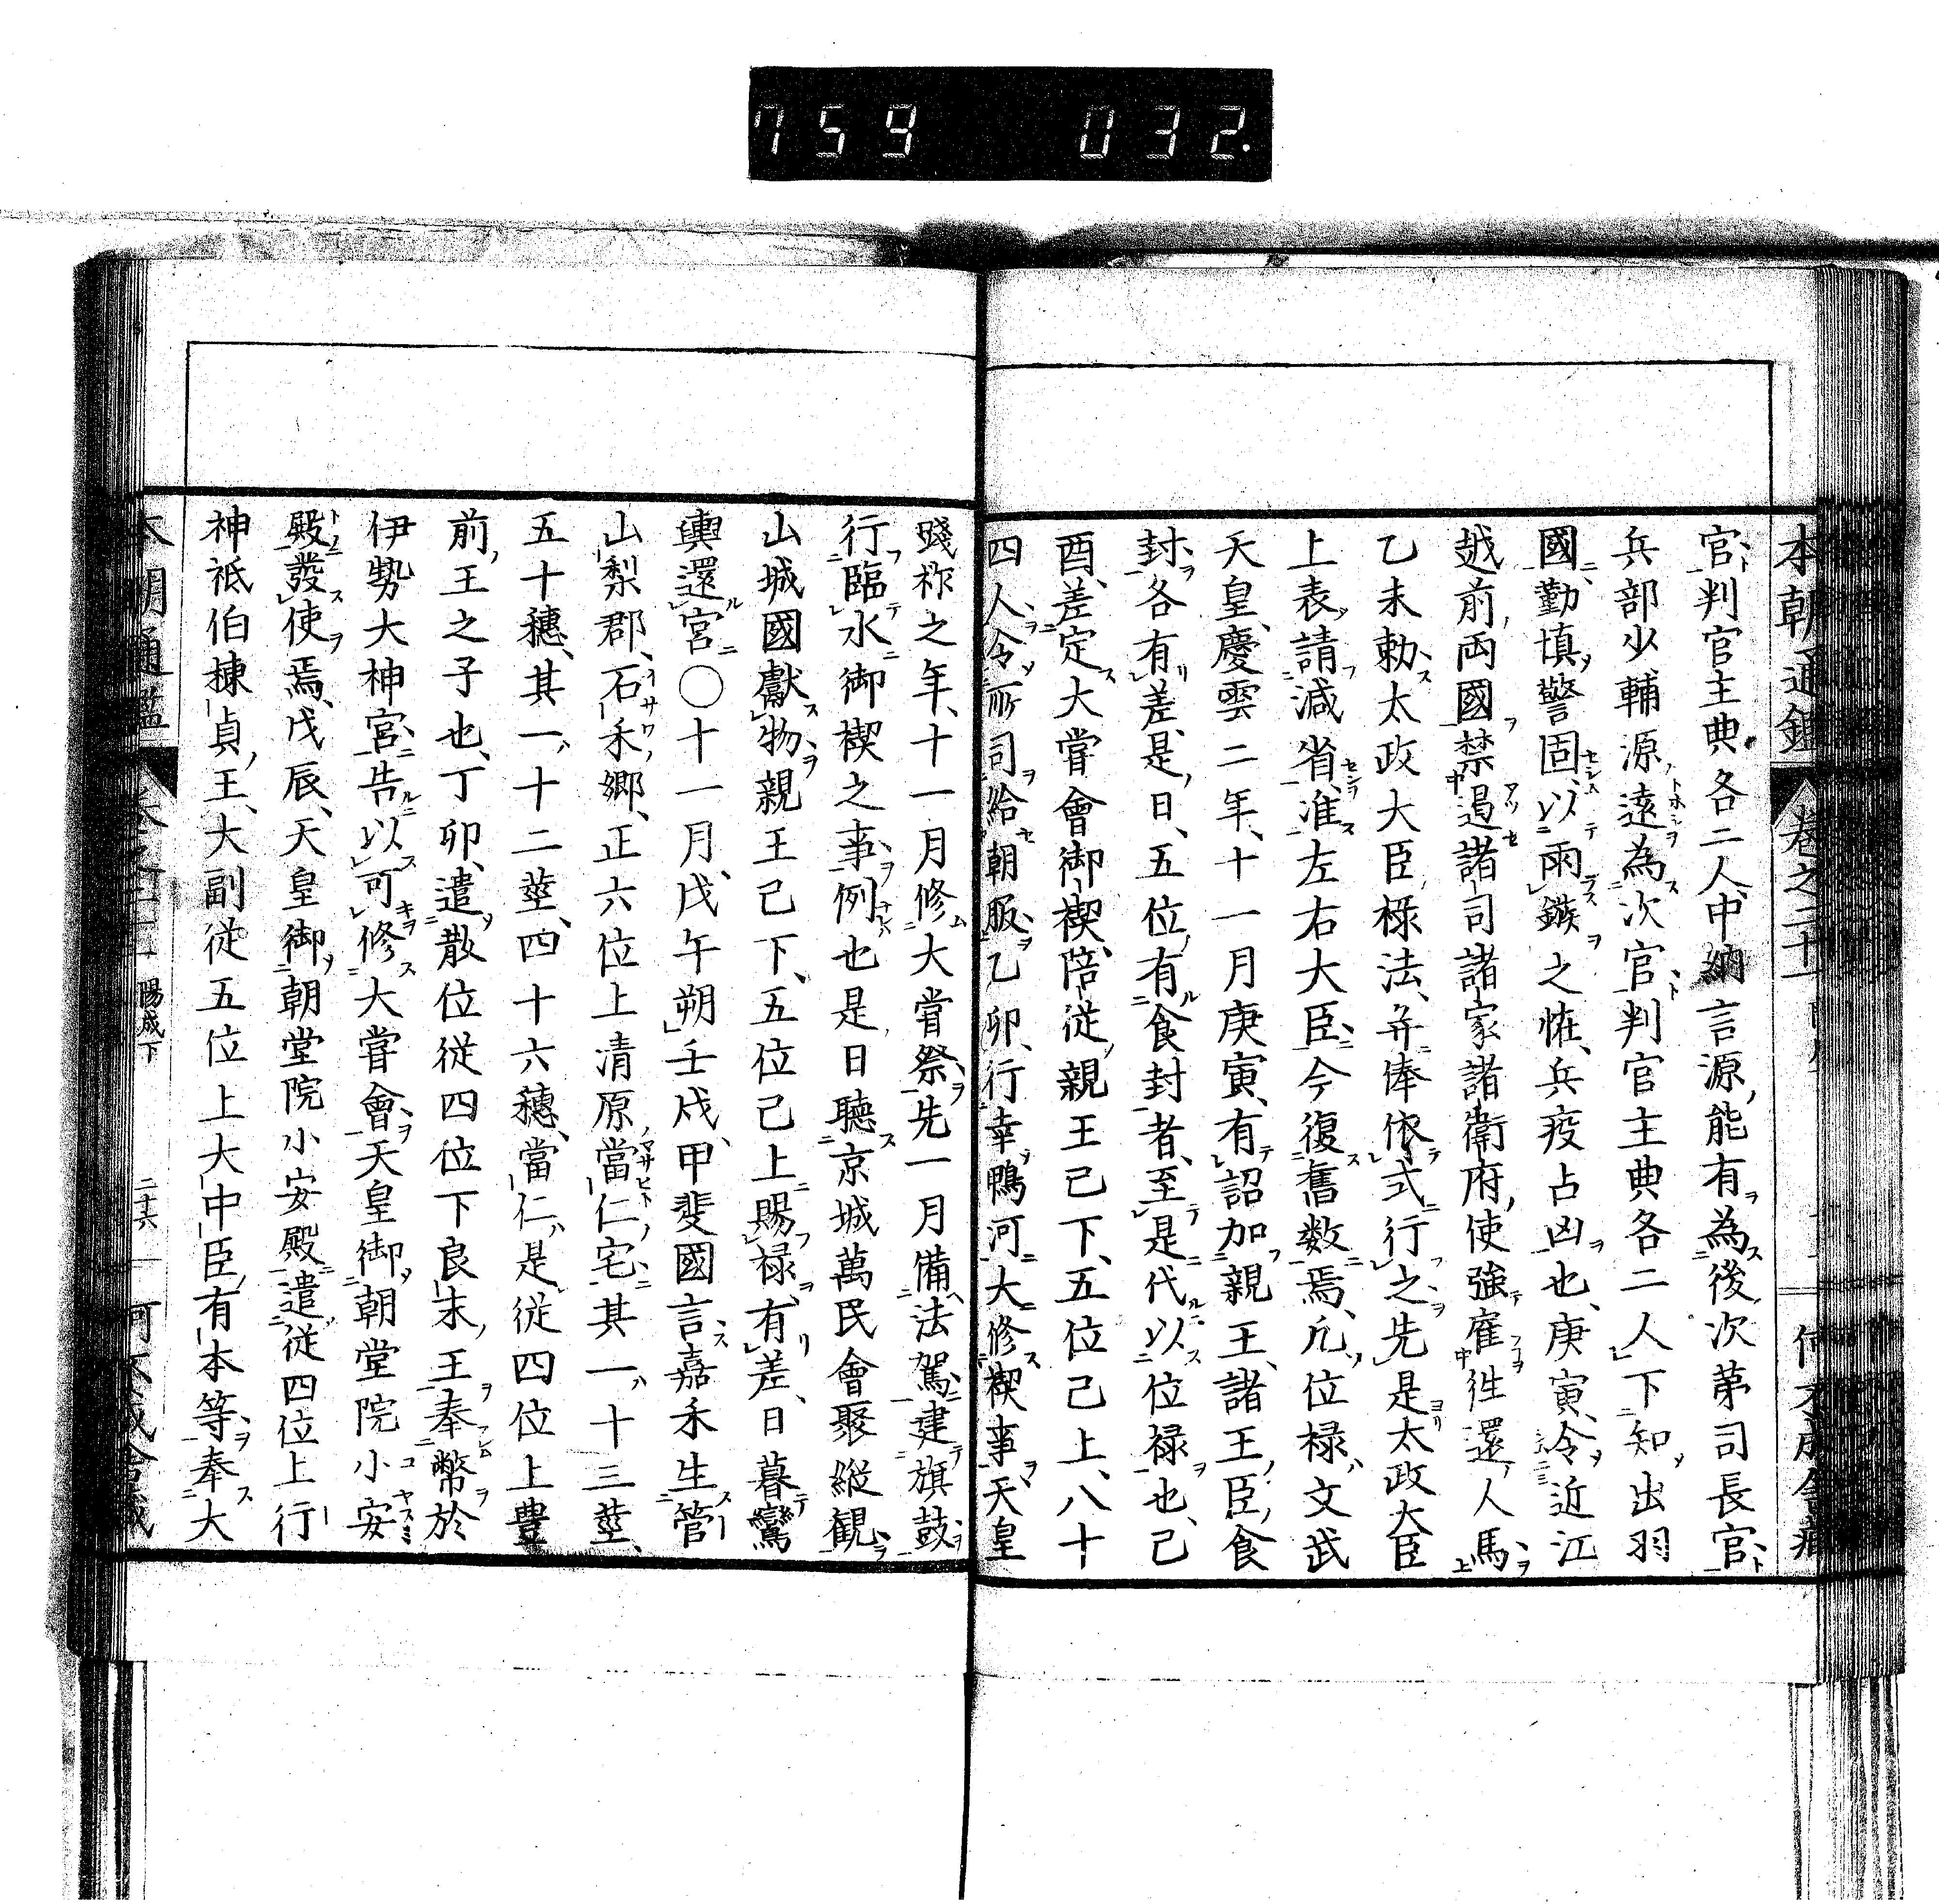 759 032.
本朝通鑑 卷之二十一
官判官主典各二人、中納言源能有為後次第司長官
兵部少輔源遠為次官、判官主典各二人、下知出羽
國、勤填警固、以雨鏃之恠、兵疫占凶也、庚寅、令近江
越前両國禁遏諸司諸家諸衛府使強雇徃還人馬
乙未勅太政大臣祿法、并俸依式行之先是太政大臣
上表請減省、准左右大臣、今復舊数焉、凢位祿文武
天皇、慶雲二年、十一月庚寅、有詔加親王、諸王、臣、食
封、各有差、是日、五位有食封者、至是代以位祿也、己
酉、差定大嘗會御禊、陪從、親王已下、五位已上、八十
四人、令所司給朝服、乙卯、行幸鴨河大修禊事、天皇
踐祚之年、十一月修大嘗祭、先一月備法駕、建旗鼓
行臨水御禊之事例也是日聽京城萬民會聚縱観
山城國獻物、親王已下、五位已上賜祿、有差、日暮鸞
輿還宮〇十一月、戊午朔壬戌、甲斐國言、嘉禾生管
山梨郡、石禾郷、正六位上清原當仁宅、其一十三莖、
五十穗、其一十二莖、四十六穗、當仁、是從四位上豊
前王之子也、丁卯、遣散位從四位下良末王奉幣於
伊勢大神宮、告以可修大嘗會、天皇御朝堂院小安
殿、發使焉、戊辰、天皇御朝堂院小安殿遣從四位上行
神祇伯棟貞王、大副從五位上大中臣有本等、奉大
本朝通鑑 陽成下 二十六